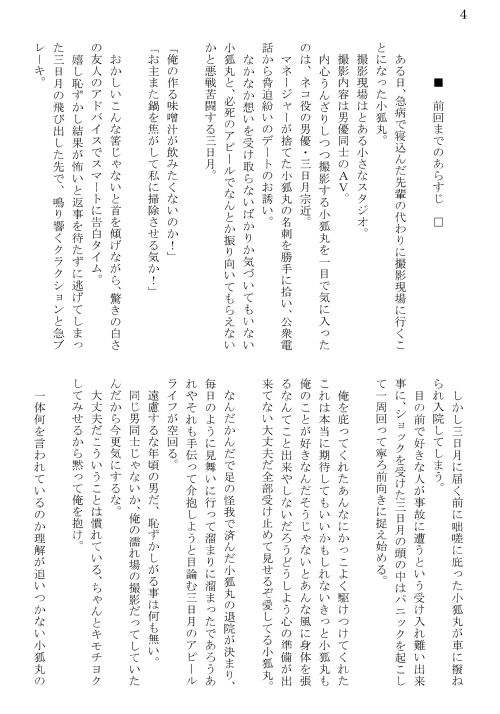 4
■　前回までのあらすじ　□
ある日、急病で寝込んだ先輩の代わりに撮影現場に行くこ
とになった小狐丸。
撮影現場はとある小さなスタジオ。
撮影内容は男優同士のＡＶ。
内心うんざりしつつ撮影する小狐丸を一目で気に入った
のは、ネコ役の男優・三日月宗近。
マネージャーが捨てた小狐丸の名刺を勝手に拾い、公衆電
話から脅迫紛いのデートのお誘い。
なかなか想いを受け取らないばかりか気づいてもいない
小狐丸と、必死のアピールでなんとか振り向いてもらえない
かと悪戦苦闘する三日月。
「俺の作る味噌汁が飲みたくないのか！」
「お主また鍋を焦がして私に掃除させる気か！」
おかしいこんな筈じゃないと首を傾げながら、驚きの白さ
の友人のアドバイスでスマートに告白タイム。
嬉し恥ずかし結果が怖いと返事を待たずに逃げてしまっ
た三日月の飛び出した先で、鳴り響くクラクションと急ブ
レーキ。
しかし三日月に届く前に咄嗟に庇った小狐丸が車に撥ね
られ入院してしまう。
目の前で好きな人が事故に遭うという受け入れ難い出来
事に、ショックを受けた三日月の頭の中はパニックを起こし
て一周回って寧ろ前向きに捉え始める。
俺を庇ってくれたあんなにかっこよく駆けつけてくれた
これは本当に期待してもいいかもしれないきっと小狐丸も
俺のことが好きなんだそうじゃないとあんな風に身体を張
るなんてこと出来やしないだろうどうしよう心の準備が出
来てない大丈夫だ全部受け止めて見せるぞ愛してる小狐丸。
なんだかんだで足の怪我で済んだ小狐丸の退院が決まり、
毎日のように見舞いに行って溜まりに溜まったであろうあ
れやそれも手伝って介抱しようと目論む三日月のアピール
ライフが空回る。
遠慮するな年頃の男だ、恥ずかしがる事は何も無い。
同じ男同士じゃないか、俺の濡れ場の撮影だってしていた
んだから今更気にするな。
大丈夫だこういうことは慣れている、ちゃんとキモチヨク
してみせるから黙って俺を抱け。
一体何を言われているのか理解が追いつかない小狐丸の